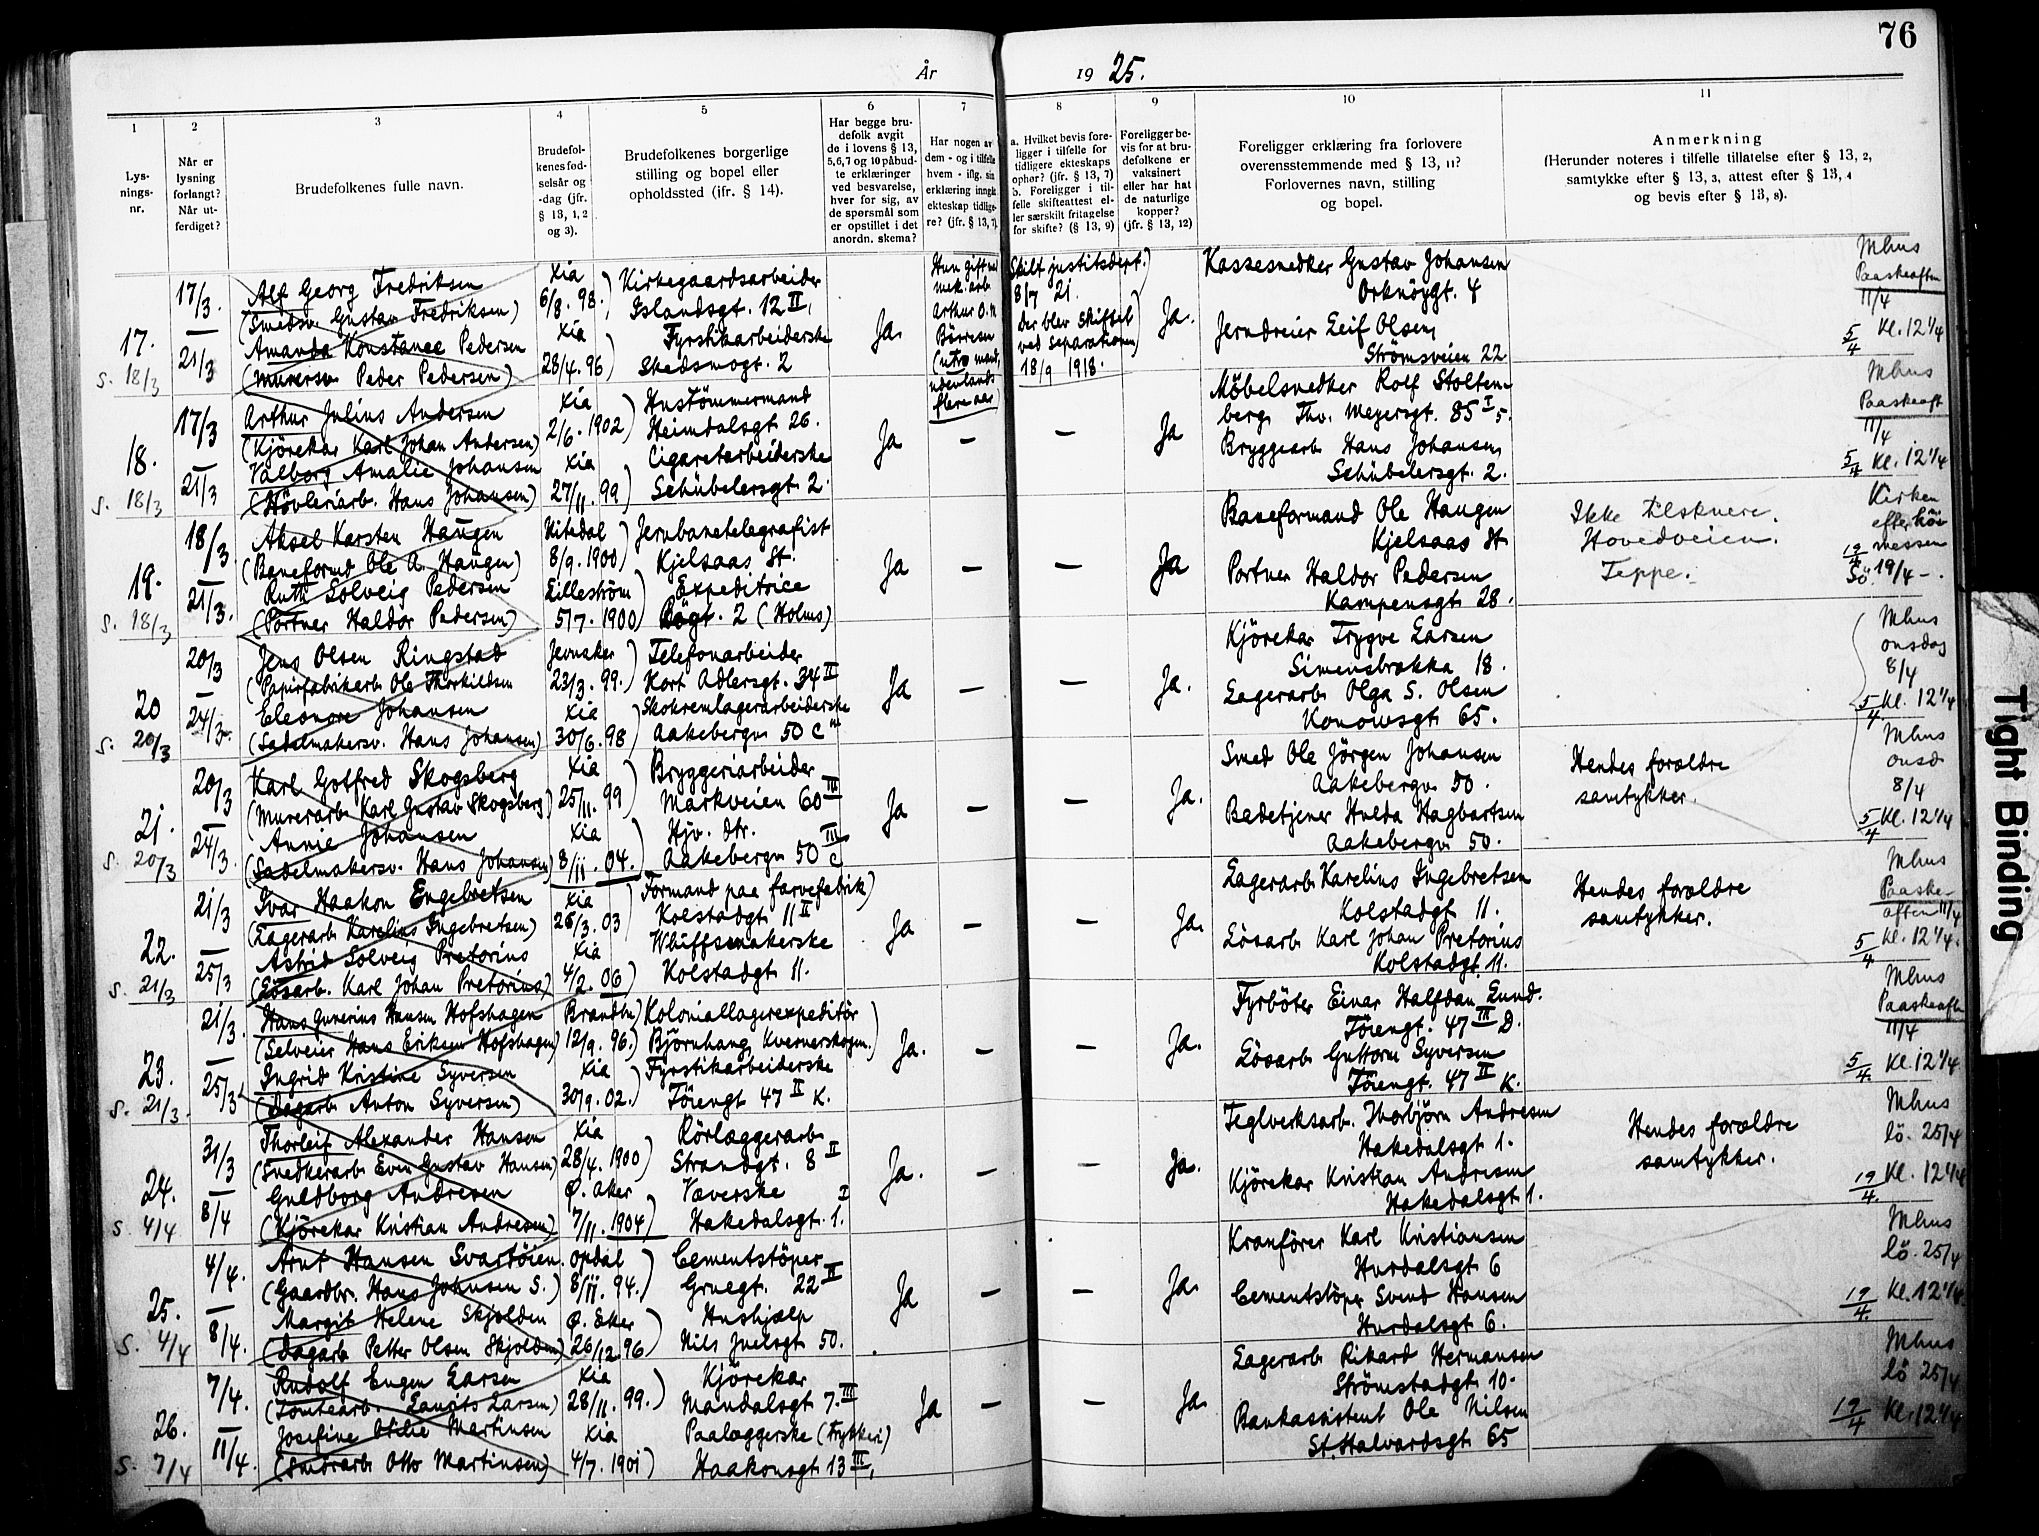 76
År 1925.
1
2
3
4
5
6
7
8
9
10
11
Lys-
nings-
nr.
Når er
lysning
forlangt?
Når ut-
ferdiget?
Brudefolkenes fulle navn.
Brudefol-
kenes fød-
selsår og
-dag (jfr.
§ 13, 1, 2
og 3).
Brudefolkenes borgerlige
stilling og bopel eller
opholdssted (jfr. § 14).
Har begge bru-
defolk avgit
de i lovens § 13,
5,6,7 og 10 påbud-
te erklæringer
ved besvarelse,
hver for sig, av
de spørsmål som
er opstillet i det
anordn. skema?
Har nogen av
dem - og i tilfelle
hvem - iflg. sin
erklæring inngått
ekteskap tidlige-
re? (jfr. § 13, 7).
a. Hvilket bevis fore-
ligger i tilfelle for
tidligere ekteskaps
ophør? (jfr. § 13, 7)
b. Foreligger i til-
felle skifteattest el-
ler særskilt fritagelse
for skifte? (§ 13, 9)
Foreligger be-
vis for at bru-
defolkene er
vaksinert
eller har hat
de naturlige
kopper?
(jfr. § 13, 12)
Foreligger erklæring fra forlovere
overensstemmende med § 13, 11?
Forlovernes navn, stilling
og bopel.
Anmerkning
(Herunder noteres i tilfelle tillatelse efter § 13, 2,
samtykke efter § 13, 3, attest efter § 13, 4
og bevis efter § 13, 8).
17.
S. 18/3
17/3
—
21/3
Alf Georg Fredriksen
(Smedsv. Gustav Fredriksen)
Amanda Konstance Pedersen
(Murersv. Peder Pedersen)
Xia
6/8. 98.
Xia
28/4. 96
Kirkegaardsarbeider
Islandsgt. 12 II,
Fyrstikarbeiderske
Skedsmogt. 2
Ja.
Hun gift med
mek. arb.
Arthur O. M.
Börresen
(utro mand,
udenlands
flere aar)
Skilt justitsdept.
8/7 21.
Der blev skiftet
ved separationen
18/9 1918.
Ja.
Kassesnedker Gustav Johansen
Orknöygt. 4
Jerndreier Leif Olsen,
Strömsveien 22
Mhus
Paaskeaften
11/4
5/4 Kl. 12 1/4
18.
S. 18/3
17/3
21/3
Arthur Julius Andersen
(Kjörekar Karl Johan Andersen)
Valborg Amalie Johansen
(Hövleriarb. Hans Johansen)
Xia
2/6. 1902
Xia
27/11. 99
Hustömmermand
Heimdalsgt. 26.
Cigaretarbeiderske
Schübelersgt. 2.
Ja
—
—
Ja
Möbelsnedker Rolf Stolten-
berg Thv. Meyersgt. 85 I 5.
Bryggearb. Hans Johansen,
Schübelersgt. 2.
Mhus
Paaskeaft
11/4
5/4 Kl. 12 1/4
19.
S. 18/3
18/3
21/3.
Aksel Karsten Haugen
(Baneformd Ole A. Haugen)
Ruth Solveig Pedersen
(Portner Haldor Pedersen)
Nitedal
8/9. 1900
Lilleström
5/7. 1900
Jernbanetelegrafist
Kjelsaas St.
Expeditrice
Bögt. 2 (Holms)
Ja
—
—
Ja
Baneformand Ole Haugen
Kjelsaas St.
Portner Haldor Pedersen
Kampensgt. 28.
Ikke tilskuere.
Hovedveien.
Teppe.
Kirken
efter höi
19/4 messen
Sö 19/4 —.
20
S. 20/3
20/3
24/3.
Jens Olsen Ringstad
(Papirfabrikarb. Ole Thorkildsen
Eleonore Johansen
(Sadelmakersv. Hans Johansen)
Jevnaker
23/3. 99.
Xia
30/6. 98
Telefonarbeider
Kort Adlersgt. 34 II
Skokremlagerarbeiderske
Aakebergv. 50 c III
Ja
—
—
Ja.
Kjörekar Trygve Larsen
Simensbrækka 18.
Lagerarb. Olga S. Olsen
Konowsgt. 65.
Mhus
onsdag
8/4
5/4 Kl. 12 1/4
21.
S. 20/3
20/3
24/3.
Karl Gotfred Skogsberg
(Murerarb. Karl Gustav Skogsberg)
Annie Johansen
(Sadelmakersv. Hans Johansen)
Xia
25/11. 99
Xia
8/11. 04.
Bryggeriarbeider
Markveien 60 III
Hjv. dtr.
Aakebergv. 50 III c
Ja
—
—
Ja.
Smed Ole Jörgen Johansen
Aakebergv. 50.
Badetjener Hulda Hagbartsen
Aakebergv. 50.
Hendes forældre
samtykker.
Mhus
onsd.
8/4
5/4 Kl. 12 1/4
22.
S. 21/3
21/3
25/3
Ivar Haakon Engebretsen
(Lagerarb. Karelius Ingebretsen)
Astrid Solveig Pretorius
(Lösarb. Karl Johan Pretorius)
Xia
26/3. 03
Xia
4/2. 06
Formand paa farvefabrik)
Kolstadgt. 11 II
Wluffsmakerske
Kolstadgt. 11.
Ja
—
—
Ja.
Lagerarb. Karelius Ingebretsen
Kolstadgt. 11.
Lösarb. Karl Johan Pretorius
Kolstadgt. 11.
Hendes forældre
samtykker.
Mhus
Paaske-
aften 11/4
5/4 Kl. 12 1/4.
23.
S. 21/3.
21/3.
25/3
Hans Guverius Hansen Hofshagen
(Selveier Hans Eriksen Hofshagen)
Ingrid Kristine Syversen
(Dagarb. Anton Syversen)
Brandbu
12/9. 96.
Xia
30/9. 02.
Koloniallagerexpeditör
Björnhaug Kvernerskogen.
Fyrstikarbeiderske
Töiengt. 47 II K.
Ja.
—
—
Ja.
Fyrböter Einar Halfdan Lund.
Töiengt. 47 III D.
Lösarb. Guttorm Syversen
Töiengt. 47 II K.
Mhus
Paaskeaften
11/4
5/4. Kl. 12 1/4
24.
S. 4/4
31/3
8/4
Thorleif Alexander Hansen
(Snedkerarb. Even Gustav Hansen)
Guldborg Andresen
(Kjörekar Kristian Andresen)
Xia
28/4. 1900
Ö. Aker
7/11. 1904
Rörlæggerarb.
Strandgt. 8 II
Væverske
Hakedalsgt. 1. I
Ja.
—
—
Ja.
Teglverksarb. Thorbjörn Andresen
Hakedalsgt. 1.
Kjörekar Kristian Andresen
Hakedalsgt. 1.
Hendes forældre
samtykker.
Mhus
lö. 25/4
19/4. Kl. 12 1/4
25.
S. 4/4
4/4.
8/4.
Arnt Hansen Svartöien
(Gaardbr. Hans Johnsen S.)
Margit Helene Skjolden
(Dagarb. Petter Olsen Skjolden)
Opdal
8/11. 94.
Ö. Eker
26/12. 96
Cementstöper
Gruegt. 22 II
Hushjælp
Nils Juelsgt. 50.
Ja
—
—
Ja.
Kranförer Karl Kristiansen
Hurdalsgt. 6
Cementstöper Svend Hansen
Hurdalsgt. 6.
Mhus
lö. 25/4
19/4. Kl. 12 1/4
26.
S. 7/4
7/4.
11/4.
Rudolf Eugen Larsen
(Tomtearb. Laurits Larsen)
Josefine Otilie Martinsen
(Smörarb. Otto Martinsen)
Xia
28/11. 99.
Xia
4/7. 1901
Kjörekar
Mandalsgt. 7. III
Paalæggerske (Trykkeri)
Haakonsgt. 13 III.
Ja
—
—
Ja.
Lagerarb. Rikard Hermansen
Strömstadgt. 10.
Bankassistent Ole Nilsen
St. Halvardsgt. 65
Mhus
lö 25/4
19/4 Kl. 12 1/4
Tight Binding